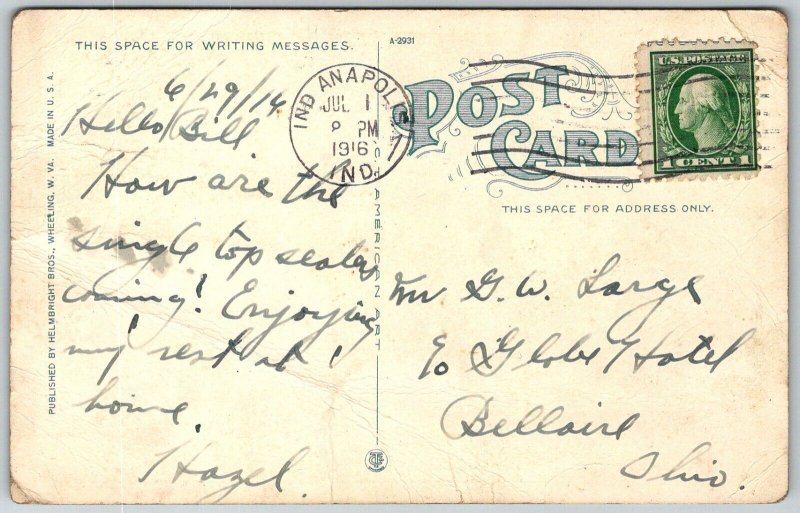 THIS SPACE FOR WRITING MESSAGES.
6/29/16
Hello Bill
How are the
single top sealers
coming! Enjoying
my rest at
home.
Hazel.
PUBLISHED BY HELMBRIGHT BROS., WHEELING, W. VA. MADE IN U. S. A.
A-2931
AMERICAN ART
INDIANAPOLIS
JUL 1
PM
1916
IND.
POST
CARD
U.S. POSTAGE
1 CENT 1
THIS SPACE FOR ADDRESS ONLY.
Mr G. W. Large
c/o Globe Hotel
Bellaire
Ohio.